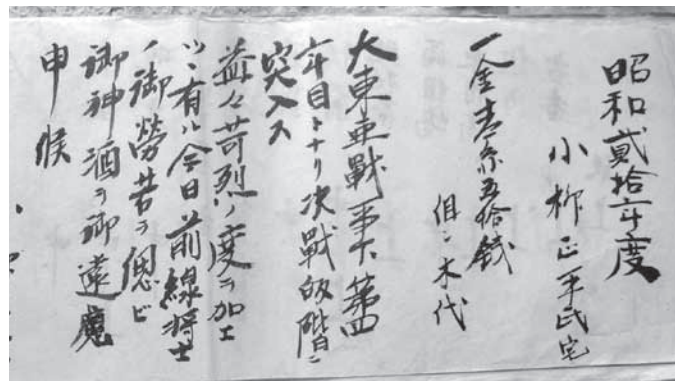 昭和貳拾年度
小柳正平氏宅
一金壱円五拾銭
但シ木代
大東亜戦爭下第四
年目トナリ决戰段階ニ
突入ス
益々苛烈ノ度ヲ加エ
ツヽ有ル今日前線将士
ノ御勞苦ヲ偲ビ
御神酒ヲ御遠慮
申候